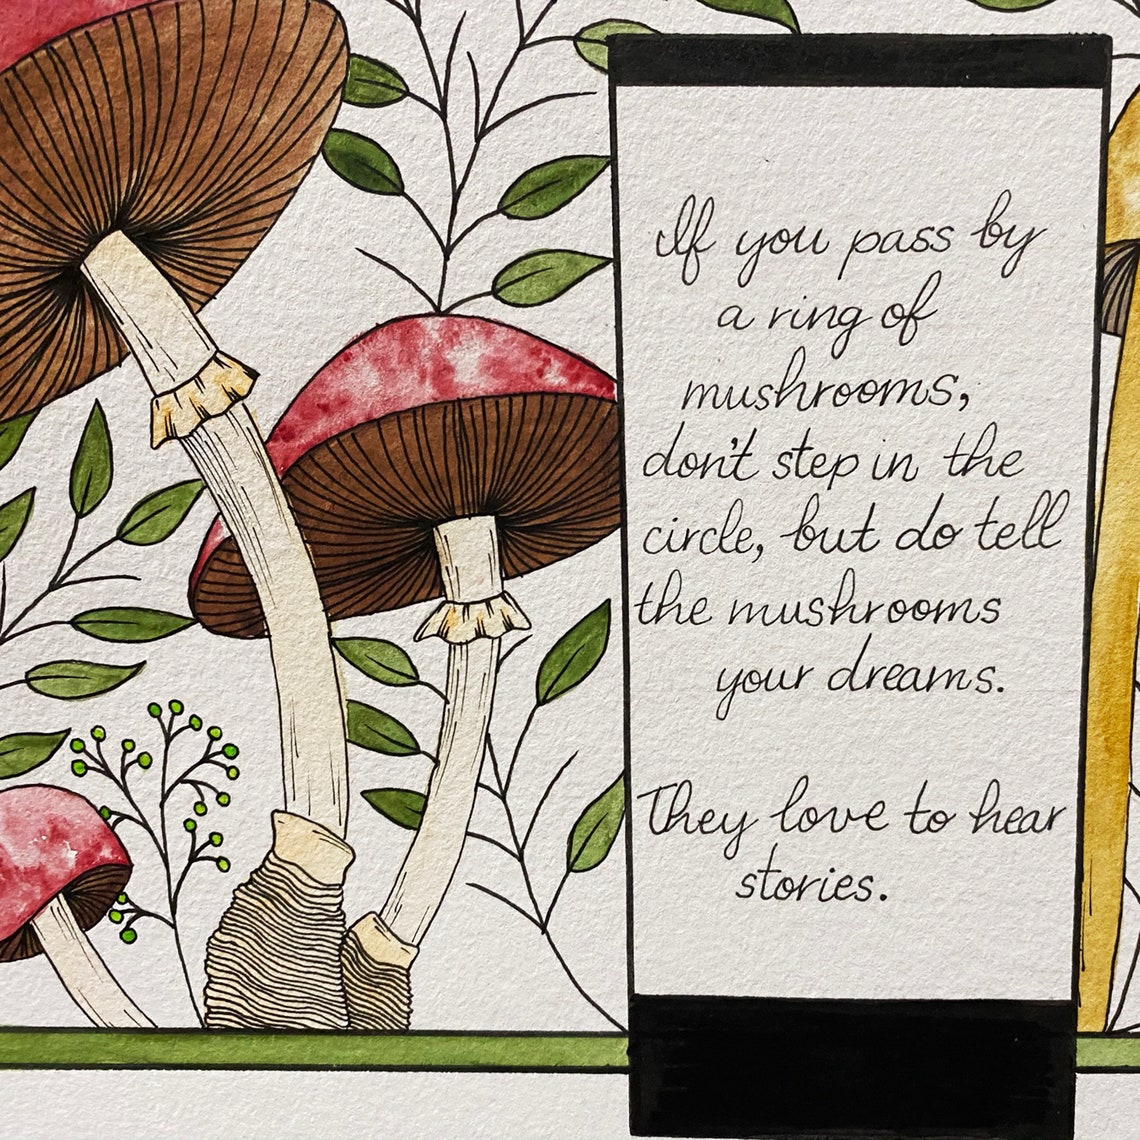 If you pass by
a ring of
mushrooms,
don't step in the
circle, but do tell
the mushrooms
your dreams.
They love to hear
stories.